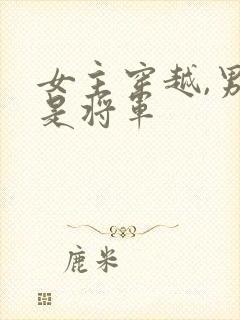 女主穿越,男
是将军
鹿米